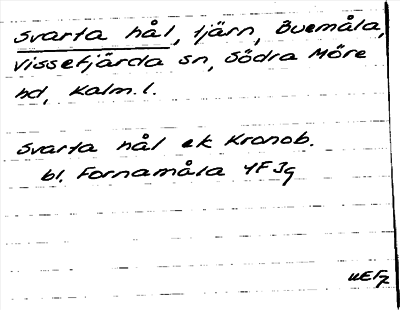 Svarta hål, tjärn, Buemåla,
Vissefjärda sn, Södra Möre
hd, Kalm. l.
Svarta hål ek Kronob.
bl. Fornamåla 4F3g